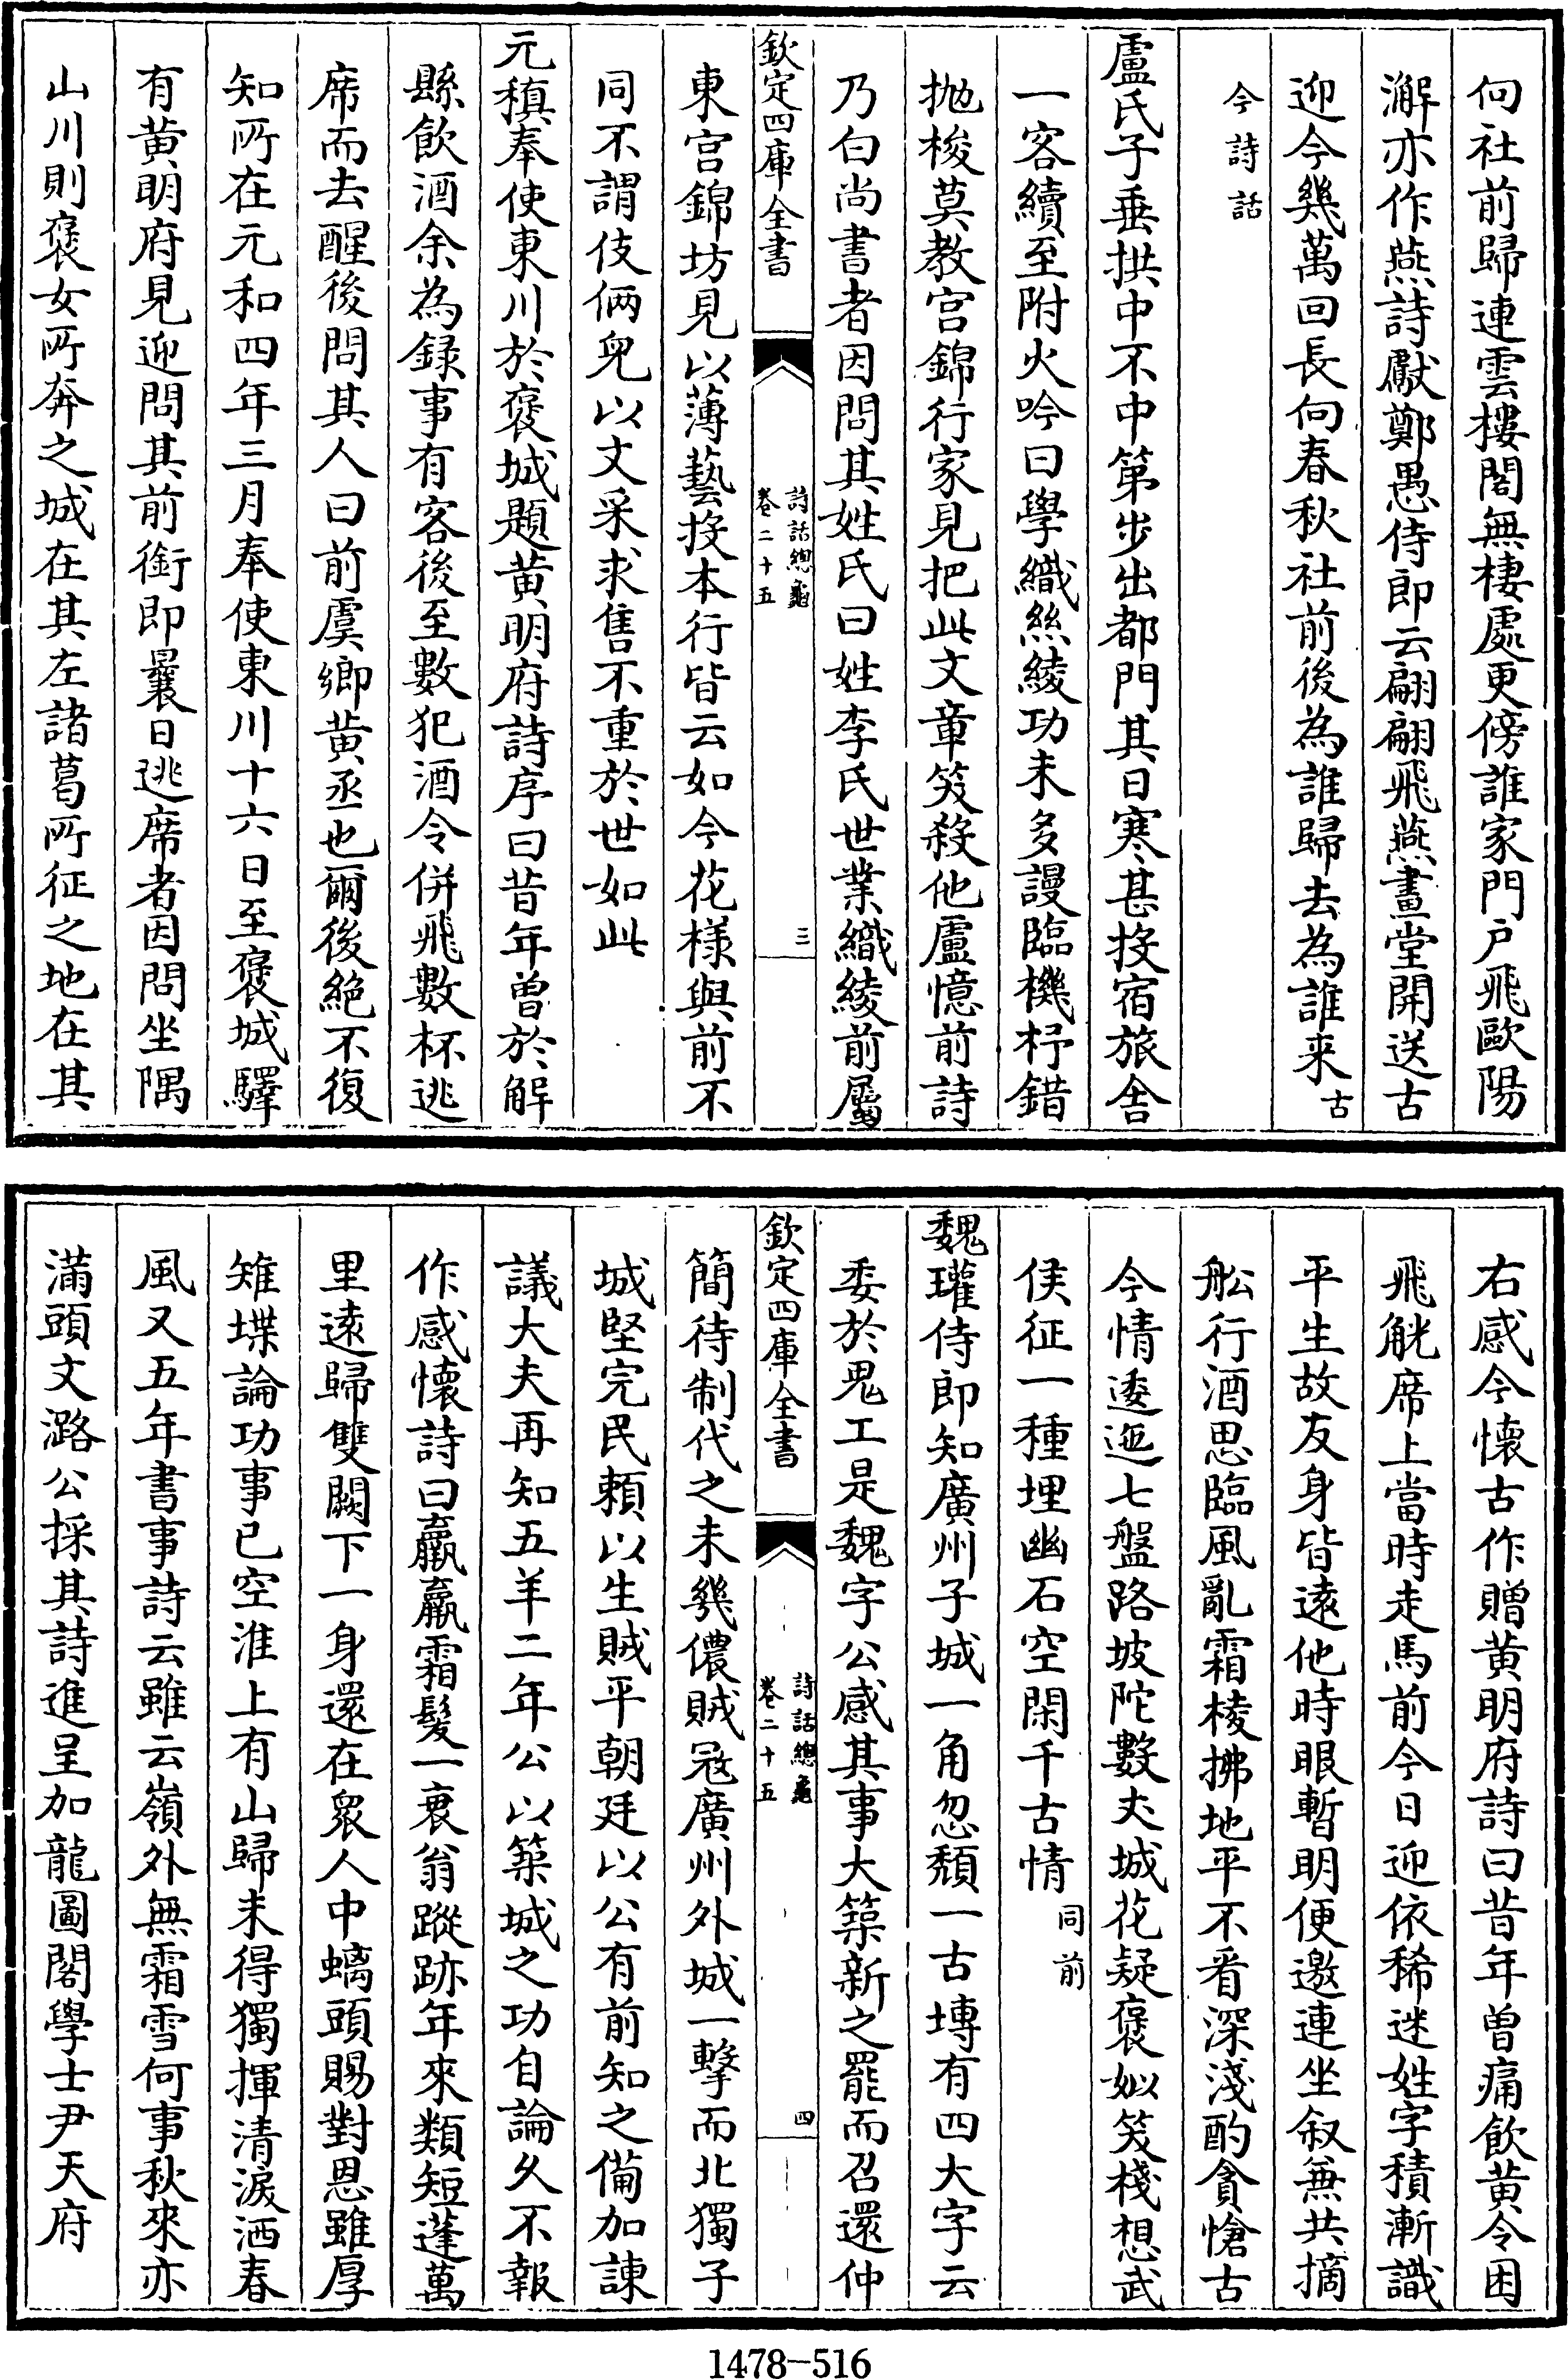 向社前歸連雲樓閣無棲處更傍誰家門户飛歐陽
澥亦作燕詩獻鄭愚侍郎云翩翩飛燕畫堂開送古
迎今幾萬回長向春秋社前後為誰歸去為誰来古
今詩話
盧氏子垂拱中不中第步出都門其日寒甚投宿旅舍
一客續至附火吟曰學織絲綾功未多謾臨機杼錯
抛梭莫教宫錦行家見把此文章笑殺他盧憶前詩
乃白尚書者因問其姓氏曰姓李氏世業織綾前屬
欽定四庫全書
詩話總龜
卷二十五
三
東宫錦坊見以薄藝投本行皆云如今花様與前不
同不謂伎倆兒以文采求售不重於世如此
元稹奉使東川於褒城題黄明府詩序曰昔年曾於解
縣飲酒余為録事有客後至數犯酒令併飛數杯逃
席而去醒後問其人曰前虞鄉黄丞也爾後絶不復
知所在元和四年三月奉使東川十六日至褒城驛
有黄明府見迎問其前銜即曩日逃席者因問坐隅
山川則褒女所奔之城在其左諸葛所征之地在其
右感今懷古作贈黄明府詩曰昔年曾痛飲黄令困
飛觥席上當時走馬前今日迎依稀迷姓字積漸識
平生故友身皆遠他時眼暫明便邀連坐叙無共摘
舩行酒思臨風亂霜棱拂地平不看深淺酌貪愴古
今情逶迤七盤路坡陀數丈城花疑褒姒笑棧想武
侯征一種埋幽石空閑千古情同前
魏瓘侍郎知廣州子城一角忽頽一古塼有四大字云
委於鬼工是魏字公感其事大築新之罷而召還仲
欽定四庫全書
詩話總龜
卷二十五
四
簡待制代之未幾儂賊冦廣州外城一擊而北獨子
城堅完民頼以生賊平朝廷以公有前知之備加諫
議大夫再知五羊二年公以築城之功自論久不報
作感懷詩曰羸羸霜髮一衰翁蹤跡年來類短蓬萬
里遠歸雙闕下一身還在衆人中螭頭賜對恩雖厚
雉堞論功事已空淮上有山歸未得獨揮清淚洒春
風又五年書事詩云雖云嶺外無霜雪何事秋來亦
滿頭文潞公採其詩進呈加龍圖閣學士尹天府
1478-516